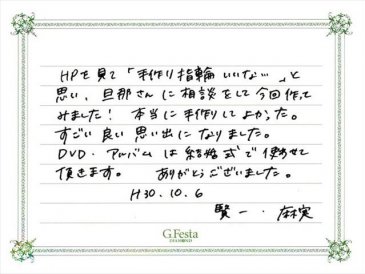 HPを見て「手作り指輪いいな…」と
思い、旦那さんに相談をして今回作って
みました！ 本当に手作りしてよかった。
すごい良い思い出になりました。
DVD・アルバムは結婚式で使わせて
頂きます。 ありがとうございました。
H30.10.6
賢一・麻実
G.Festa
DIAMOND